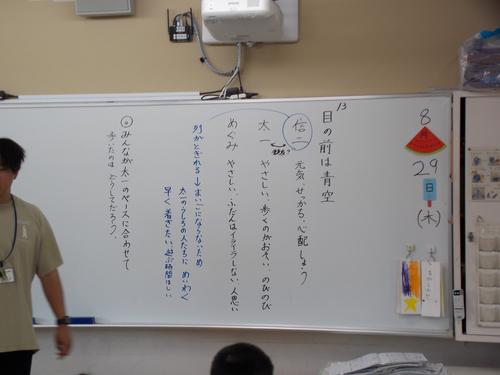 13
目の前は青空
信二 元気、せっかち、心配しょう
太一 やさしい、歩くのがおそい、のびのび
めぐみ やさしい、ふだんはイライラしない、人思い
列がとぎれる→まいごにならないため
太一のうしろの人たちに めいわく
早く着きたい、遊ぶ時間ほしい
みんなが太一のペースに合わせて
歩いたのは どうしてだろう。
8
29
日
(木)
EPSON